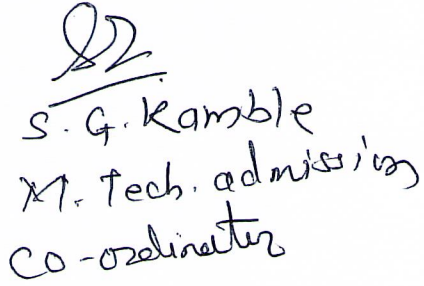 S. G. Kamble
M. Tech. admission
Co-ordinator